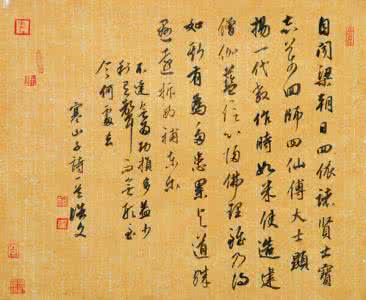 自闻梁朝日四依诸贤士寶
志萬回師四仙傅大士顯
揚一代教作時如来使造建
僧伽藍信心歸佛理雖乃得
如斯有為多患累与道殊
懸遠拆西補東尔
不達無為功損多益少
利有聲而無形至
今何處去
寒山子詩一首